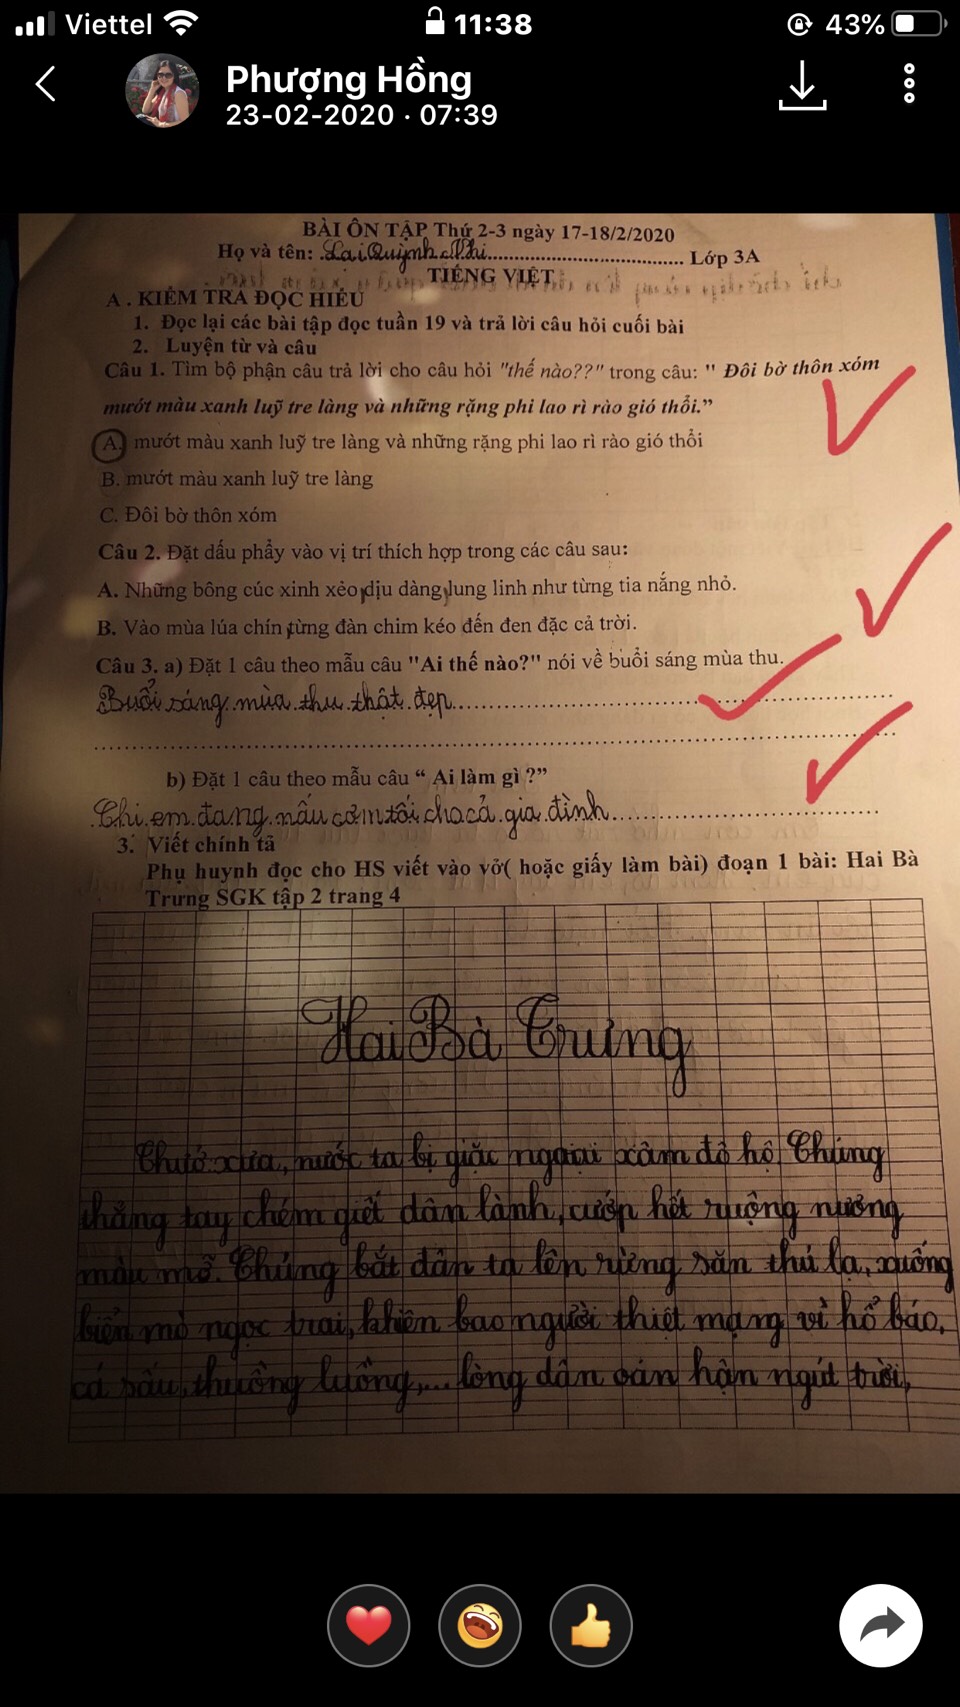 Viettel 11:38 43%
Phượng Hồng
23-02-2020 · 07:39
BÀI ÔN TẬP Thứ 2-3 ngày 17-18/2/2020
Họ và tên: Lại Quỳnh Chi Lớp 3A
TIẾNG VIỆT
A . KIỂM TRA ĐỌC HIỂU
1. Đọc lại các bài tập đọc tuần 19 và trả lời câu hỏi cuối bài
2. Luyện từ và câu
Câu 1. Tìm bộ phận câu trả lời cho câu hỏi "thế nào??" trong câu: " Đôi bờ thôn xóm
mướt màu xanh luỹ tre làng và những rặng phi lao rì rào gió thổi."
A. mướt màu xanh luỹ tre làng và những rặng phi lao rì rào gió thổi
B. mướt màu xanh luỹ tre làng
C. Đôi bờ thôn xóm
Câu 2. Đặt dấu phẩy vào vị trí thích hợp trong các câu sau:
A. Những bông cúc xinh xẻo, dịu dàng, lung linh như từng tia nắng nhỏ.
B. Vào mùa lúa chín, từng đàn chim kéo đến đen đặc cả trời.
Câu 3. a) Đặt 1 câu theo mẫu câu "Ai thế nào?" nói về buổi sáng mùa thu.
Buổi sáng mùa thu thật đẹp.
b) Đặt 1 câu theo mẫu câu “ Ai làm gì ?”
Chị em đang nấu cơm tối cho cả gia đình.
3. Viết chính tả
Phụ huynh đọc cho HS viết vào vở( hoặc giấy làm bài) đoạn 1 bài: Hai Bà
Trưng SGK tập 2 trang 4
Hai Bà Trưng
Thuở xưa, nước ta bị giặc ngoại xâm đô hộ. Chúng
thẳng tay chém giết dân lành, cướp hết ruộng nương
màu mỡ. Chúng bắt dân ta lên rừng săn thú lạ, xuống
biển mò ngọc trai, khiến bao người thiệt mạng vì hổ báo,
cá sấu, thuồng luồng,... lòng dân oán hận ngút trời,